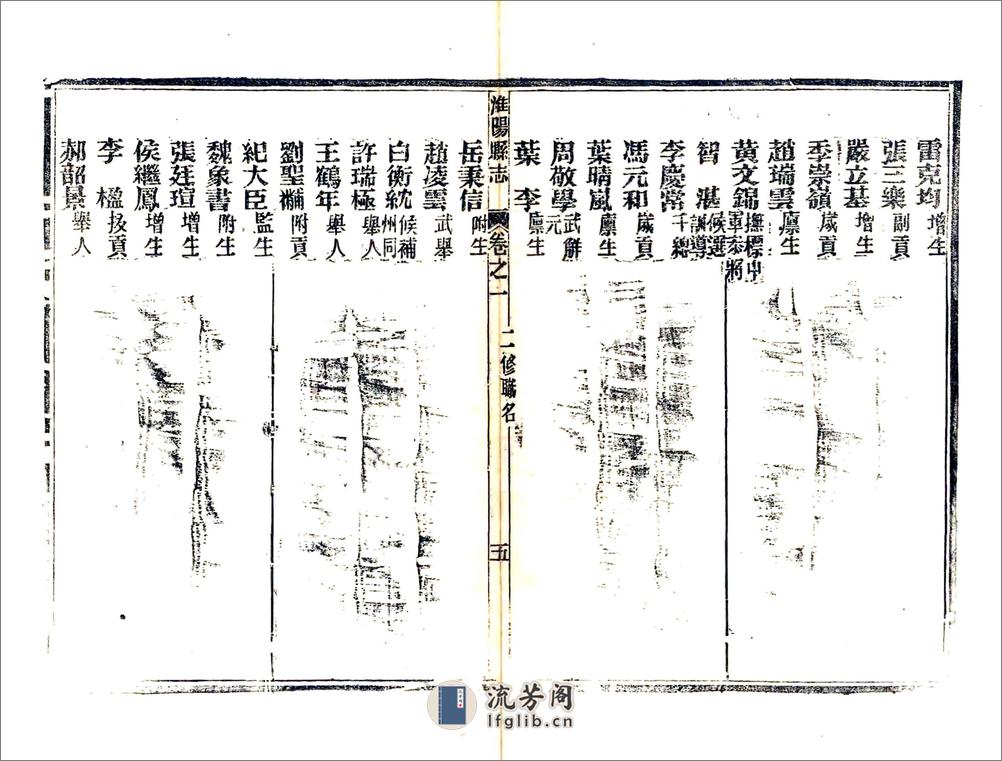 雷克均增生
張三樂副貢
嚴立基增生
季崇嶺歲貢
趙瑞雲廪生
黃文錦撫標中軍參將
智湛候選訓導
李慶常千總
馮元和歲貢
葉晴嵐廪生
周敬學武解元
葉李廪生
淮陽縣志
卷之一
二修職名
五
岳秉信附生
趙凌雲武舉
白衡紞候補州同
許瑞極舉人
王鶴年舉人
劉聖黼附貢
紀大臣監生
魏象書附生
張廷瑄增生
侯繼鳳增生
李楹拔貢
郝韶景舉人
流芳阁
lfglib.cn